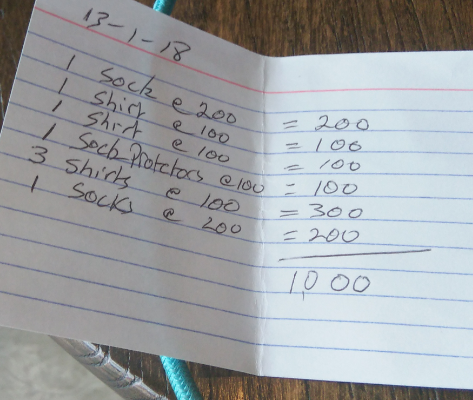 13-1-18
1 Sock @ 200 = 200
1 Shirt @ 100 = 100
1 Shirt @ 100 = 100
1 Sock Protetors @100 = 100
3 Shirts @ 100 = 300
1 Socks @ 200 = 200
1,000